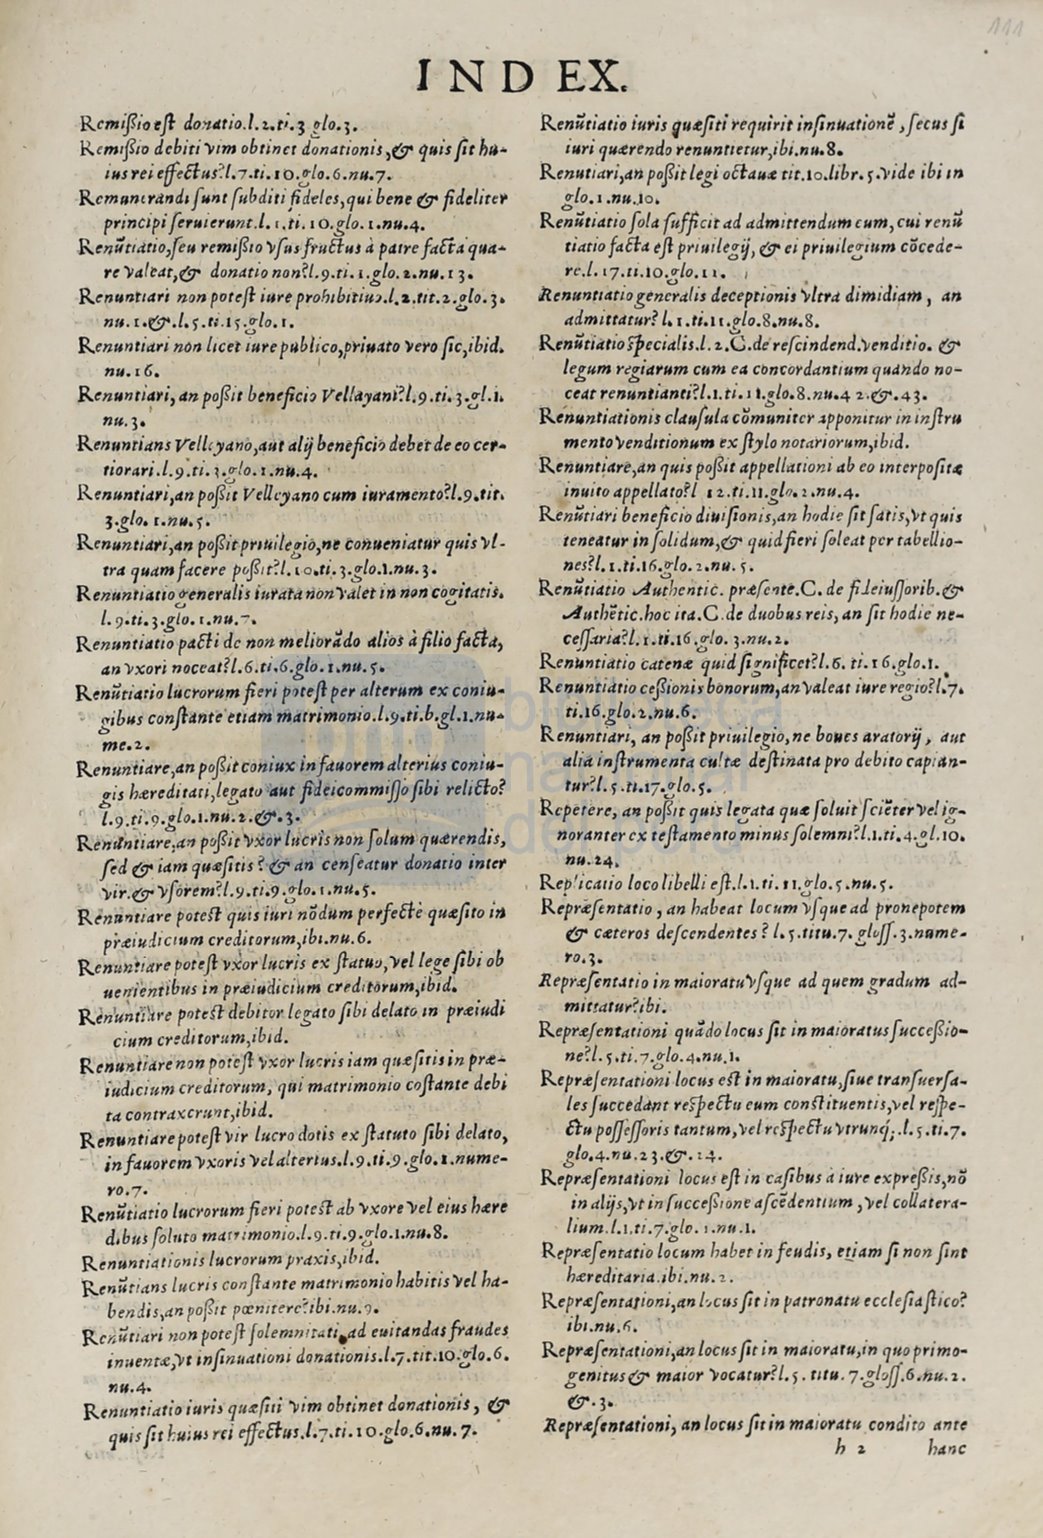 111
INDEX.
Remißio est donatio.l.2.ti.3 glo.3.
Remißio debiti vim obtinet donationis,& quis sit hu-
ius rei effectus?l.7.ti.10.glo.6.nu.7.
Remunerandi sunt subditi fideles,qui bene & fideliter
principi seruierunt.l.1.ti.10.glo.1.nu.4.
Renũtiatio,seu remißio vsusfructus à patre facta qua-
re valeat,& donatio non?l.9.ti.1.glo.2.nu.13.
Renuntiari non potest iure prohibitiuo.l.2.tit.2.glo.3.
nu.1.&.l.5.ti.15.glo.1.
Renuntiari non licet iure publico,priuato vero sic,ibid.
nu.16.
Renuntiari, an poßit beneficio Vellayani?l.9.ti.3.gl.1.
nu.3.
Renuntians Velleyano,aut alij beneficio debet de eo cer-
tiorari.l.9.ti.3.glo.1.nu.4.
Renuntiari,an poßit Velleyano cum iuramento?l.9.tit.
3.glo.1.nu.5.
Renuntiari,an poßit priuilegio,ne conueniatur quis vl-
tra quam facere poßit?l.10.ti.3.glo.1.nu.3.
Renuntiatio generalis iurata non valet in non cogitatis.
l.9.ti.3.glo.1.nu.7.
Renuntiatio pacti de non meliorãdo alios à filio facta,
an vxori noceat?l.6.ti.6.glo.1.nu.5.
Renũtiatio lucrorum fieri potest per alterum ex coniu-
gibus constante etiam matrimonio.l.9.ti.b.gl.1.nu-
me.2.
Renuntiare,an poßit coniux in fauorem alterius coniu-
gis hæreditati,legato aut fideicommisso sibi relicto?
l.9.ti.9.glo.1.nu.2.&.3.
Renũntiare,an poßit vxor lucris non solum quærendis,
sed & iam quæsitis? & an censeatur donatio inter
vir.& vsorem?l.9.ti.9.glo.1.nu.5.
Renuntiare potest quis iuri nõdum perfectè quæsito in
præiudicium creditorum,ibi.nu.6.
Renuntiare potest vxor lucris ex statuo,vel lege sibi ob
uenientibus in præiudicium creditorum,ibid.
Renuntiare potest debitor legato sibi delato in præiudi
cium creditorum,ibid.
Renuntiare non potest vxor lucris iam quæsitis in præ-
iudicium creditorum, qui matrimonio cõstante debi
ta contraxerunt,ibid.
Renuntiare potest vir lucro dotis ex statuto sibi delato,
in fauorem vxoris vel alterius.l.9.ti.9.glo.1.nume-
ro.7.
Renũtiatio lucrorum fieri potest ab vxore vel eius hære
dibus soluto matrimonio.l.9.ti.9.glo.1.nu.8.
Renuntiationis lucrorum praxis,ibid.
Renũtians lucris constante matrimonio habitis vel ha-
bendis,an poßit pœnitere?ibi.nu.9.
Renũtiari non potest solemnitati ad euitandas fraudes
inuentæ,vt insinuationi donationis.l.7.tit.10.glo.6.
nu.4.
Renuntiatio iuris quæsiti vim obtinet donationis, &
quis sit huius rei effectus.l.7.ti.10.glo.6.nu.7.
Renũtiatio iuris quæsiti requirit insinuationẽ, secus si
iuri quærendo renuntietur,ibi.nu.8.
Renutiari,an poßit legi octauæ tit.10.libr.5.vide ibi in
glo.1.nu.10.
Renũtiatio sola sufficit ad admittendum eum, cui renũ
tiatio facta est priuilegij, & ei priuilegium cõcede-
re.l.17.ti.10.glo.11.
Renuntiatio generalis deceptionis vltra dimidiam, an
admittatur? l.1.ti.11.glo.8.nu.8.
Renũtiatio specialis.l.2.C.de rescindend.venditio. &
legum regiarum cum ea concordantium quando no-
ceat renuntianti?l.1.ti.11.glo.8.nu.42.&.43.
Renuntiationis clausula cõmuniter apponitur in instru
mento venditionum ex stylo notariorum,ibid.
Renuntiare,an quis poßit appellationi ab eo interpositæ
inuito appellato?l 12.ti.11.glo.2.nu.4.
Renũtiari beneficio diuisionis,an hodie sit satis,vt quis
teneatur in solidum,& quid fieri soleat per tabellio-
nes?l.1.ti.16.glo.2.nu.5.
Renũtiatio Authentic. præsente.C. de fideiussorib.&
Authẽtic.hoc ita.C.de duobus reis, an sit hodie ne-
cessaria?l.1.ti.16.glo.3.nu.2.
Renuntiatio catenæ quid significet?l.6.ti.16.glo.1.
Renuntiatio ceßionis bonorum,an valeat iure regio?l.7.
ti.16.glo.2.nu.6.
Renuntiari, an poßit priuilegio,ne boues aratorij, aut
alia instrumenta cultæ destinata pro debito capian-
tur?l.5.ti.17.glo.5.
Repetere, an poßit quis legata quæ soluit sciẽter vel ig-
noranter ex testamento minus solemni?l.1.ti.4.gl.10.
nu.24.
Replicatio loco libelli est.l.1.ti.11.glo.5.nu.5.
Repræsentatio, an habeat locum vsque ad pronepotem
& cæteros descendentes? l.5.titu.7.gloss.3.nume-
ro.3.
Repræsentatio in maioratu vsque ad quem gradum ad-
mittatur?ibi.
Repræsentationi quãdo locus sit in maioratus succeßio-
ne?l.5.ti.7.glo.4.nu.1.
Repræsentationi locus est in maioratu,siue transuersa-
les succedant respectu eum constituentis,vel respe-
ctu possessoris tantum,vel respectu vtrunq;.l.5.ti.7.
glo.4.nu.23.&.24.
Repræsentationi locus est in casibus à iure expreßis,nõ
in alijs,vt in succeßione ascẽdentium, vel collatera-
lium.l.1.ti.7.glo.1.nu.1.
Repræsentatio locum habet in feudis, etiam si non sint
hæreditaria.ibi.nu.2.
Repræsentationi,an locus sit in patronatu ecclesiastico?
ibi.nu.6.
Repræsentationi,an locus sit in maioratu,in quo primo-
genitus & maior vocatur?l.5.titu.7.gloss.6.nu.2.
&.3.
Repræsentationi, an locus sit in maioratu condito ante
h 2 hanc